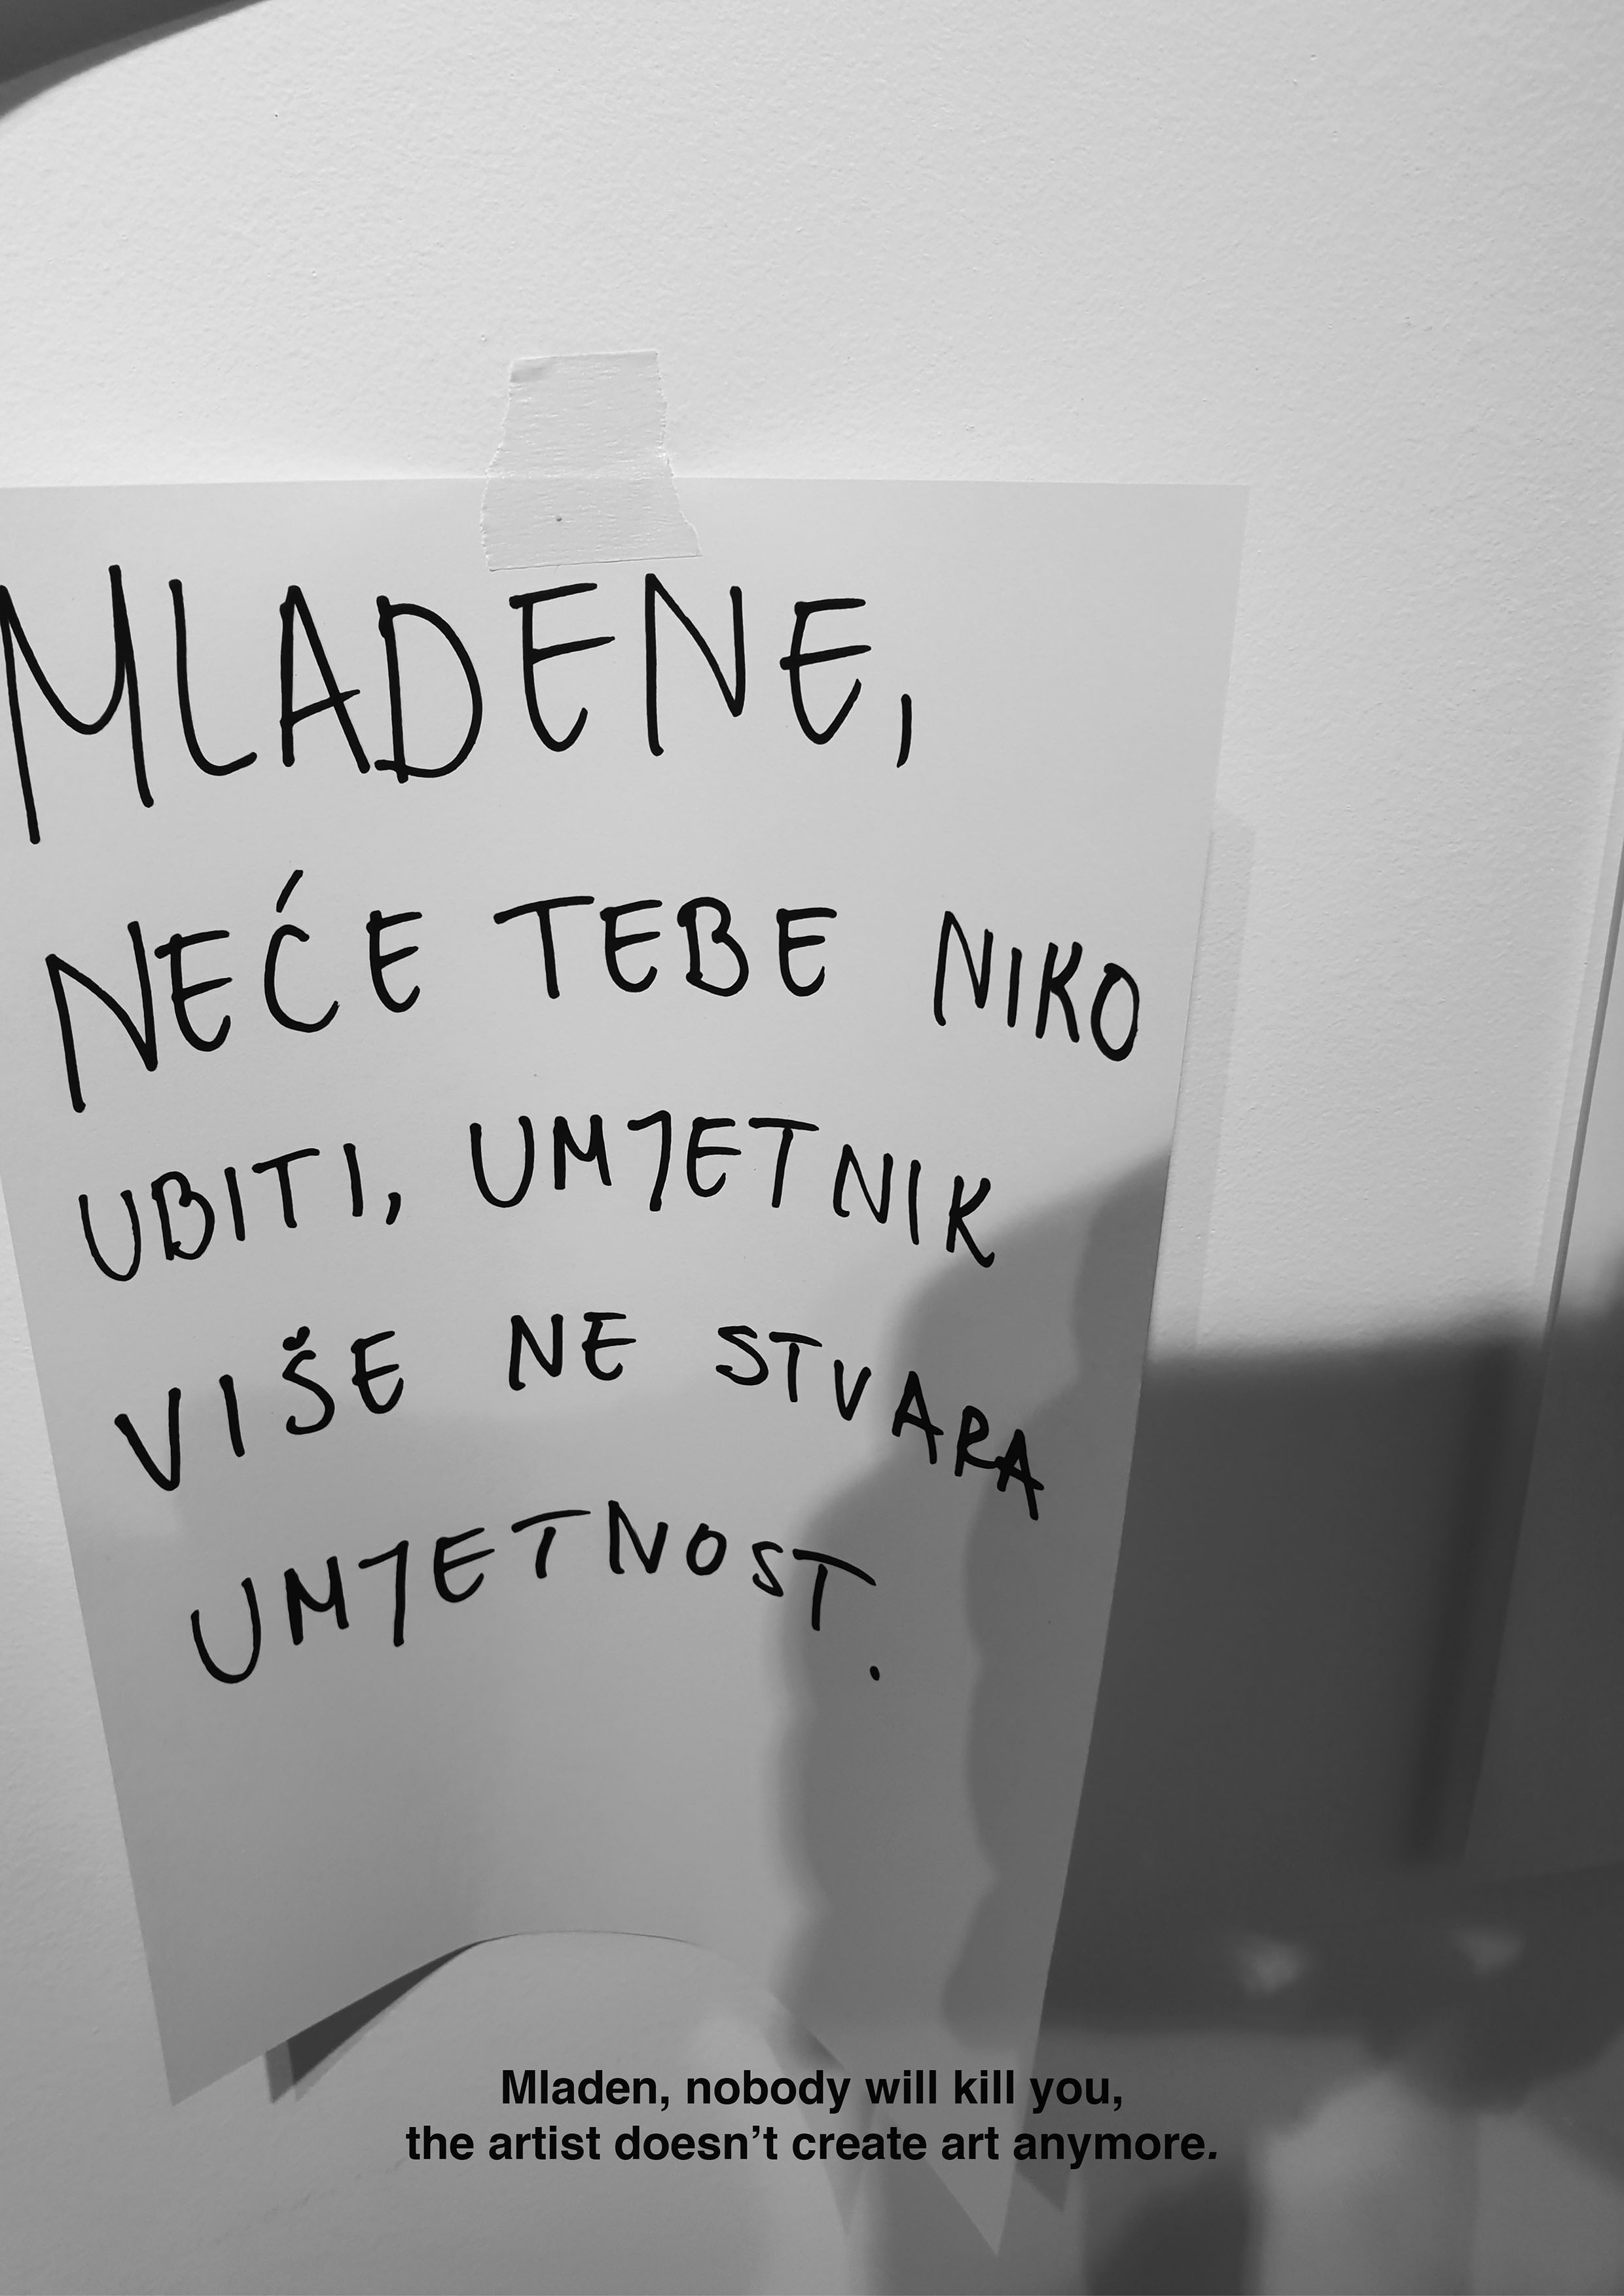 MLADENE,
NEĆE TEBE NIKO
UBITI, UMJETNIK
VIŠE NE STVARA
UMJETNOST.
Mladen, nobody will kill you,
the artist doesn’t create art anymore.